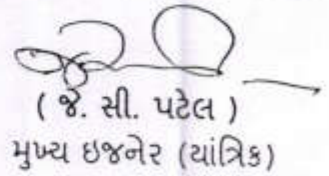 ( જે. સી. પટેલ )
મુખ્ય ઇજનેર (યાંત્રિક)